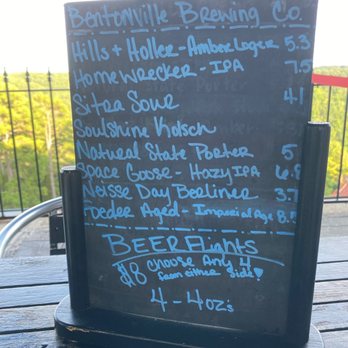 Bentonville Brewing Co
Hills + Holler - Amber Lager 5.3
Homewrecker - IPA 7.5
Sitra Sour 4.1
Soulshine Kolsch
Natural State Porter 5
Space Goose - Hazy IPA 6.8
Neisse Day Berliner 3.7
Foeder Aged - Imperial Age 8.
BEER Flights
$8 choose Any 4
from either side!
4 - 4oz's